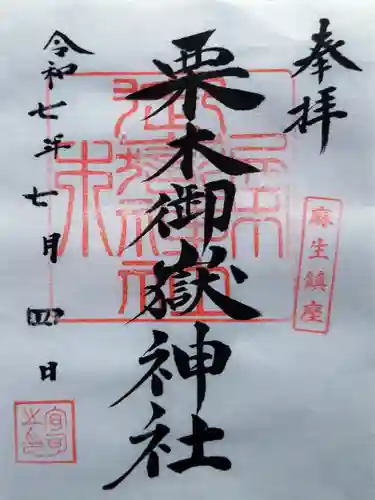 奉拝
麻生鎮座
栗木御嶽神社
令和七年七月四日